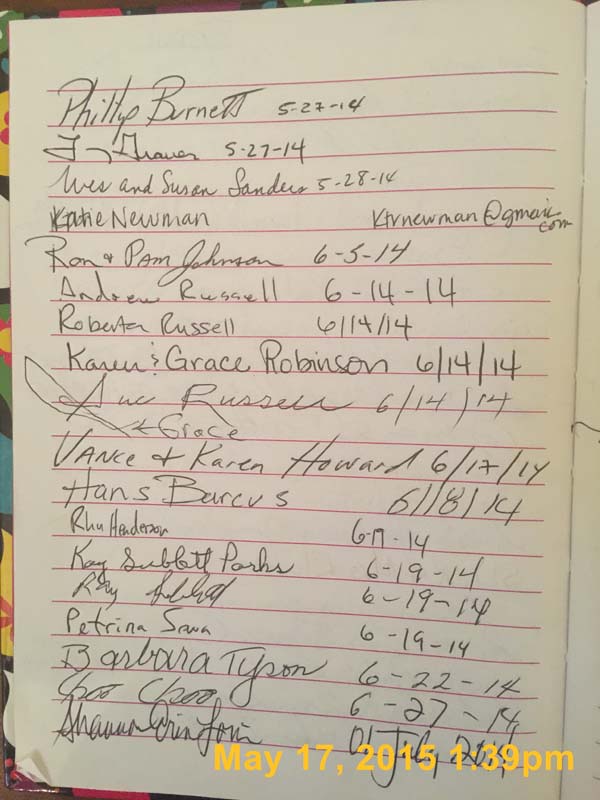 Phillip Burnett 5-27-14
5-27-14
Wes and Susan Sanders 5-28-14
Katie Newman ktrnewman@gmail.com
Ron & Pam Johnson 6-5-14
Andrew Russell 6-14-14
Roberta Russell 6/14/14
Karen & Grace Robinson 6/14/14
Sue Russell 6/14/14
← Grace
Vance & Karen Howard 6/17/14
Hans Barcus 6/18/14
Henderson 6-17-14
Kay Sublett Parks 6-19-14
Ray Sublett 6-19-14
Petrina 6-19-14
Barbara Tyson 6-22-14
Choo Choo 6-27-14
Shannon Erin 01 July, 2014
May 17, 2015 1:39pm